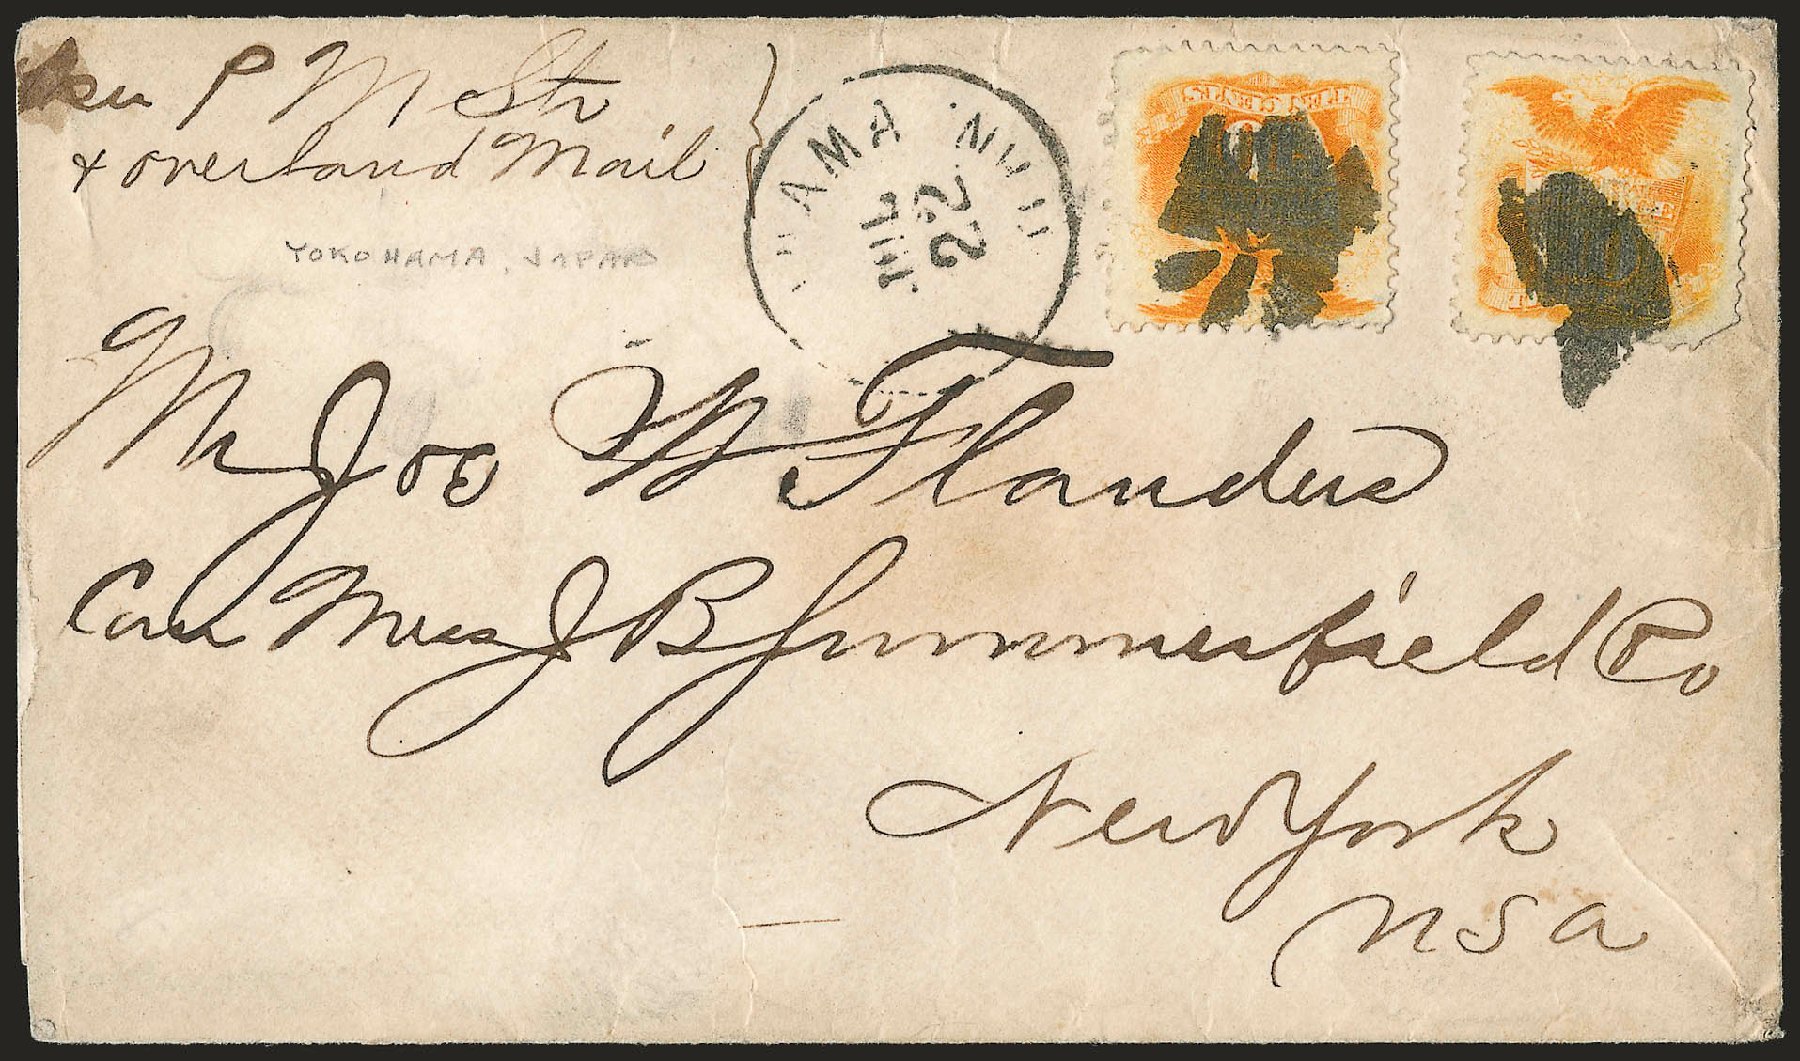 Per P M Str
& overland Mail
YOKOHAMA, JAPAN
HAMA
JUL
22
TEN CENTS
Mr Joe W Flanders
Care Mess J B Summerfield Co
New York
USA